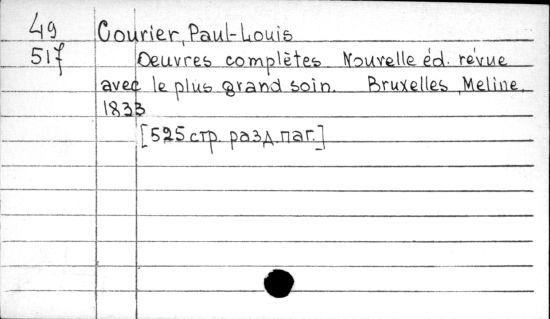 49 Courier, Paul-Louis
517 Oeuvres complètes. Nouvelle éd. révue
avec le plus grand soin. Bruxelles, Meline,
1833
[525 стр. разд. паг.]